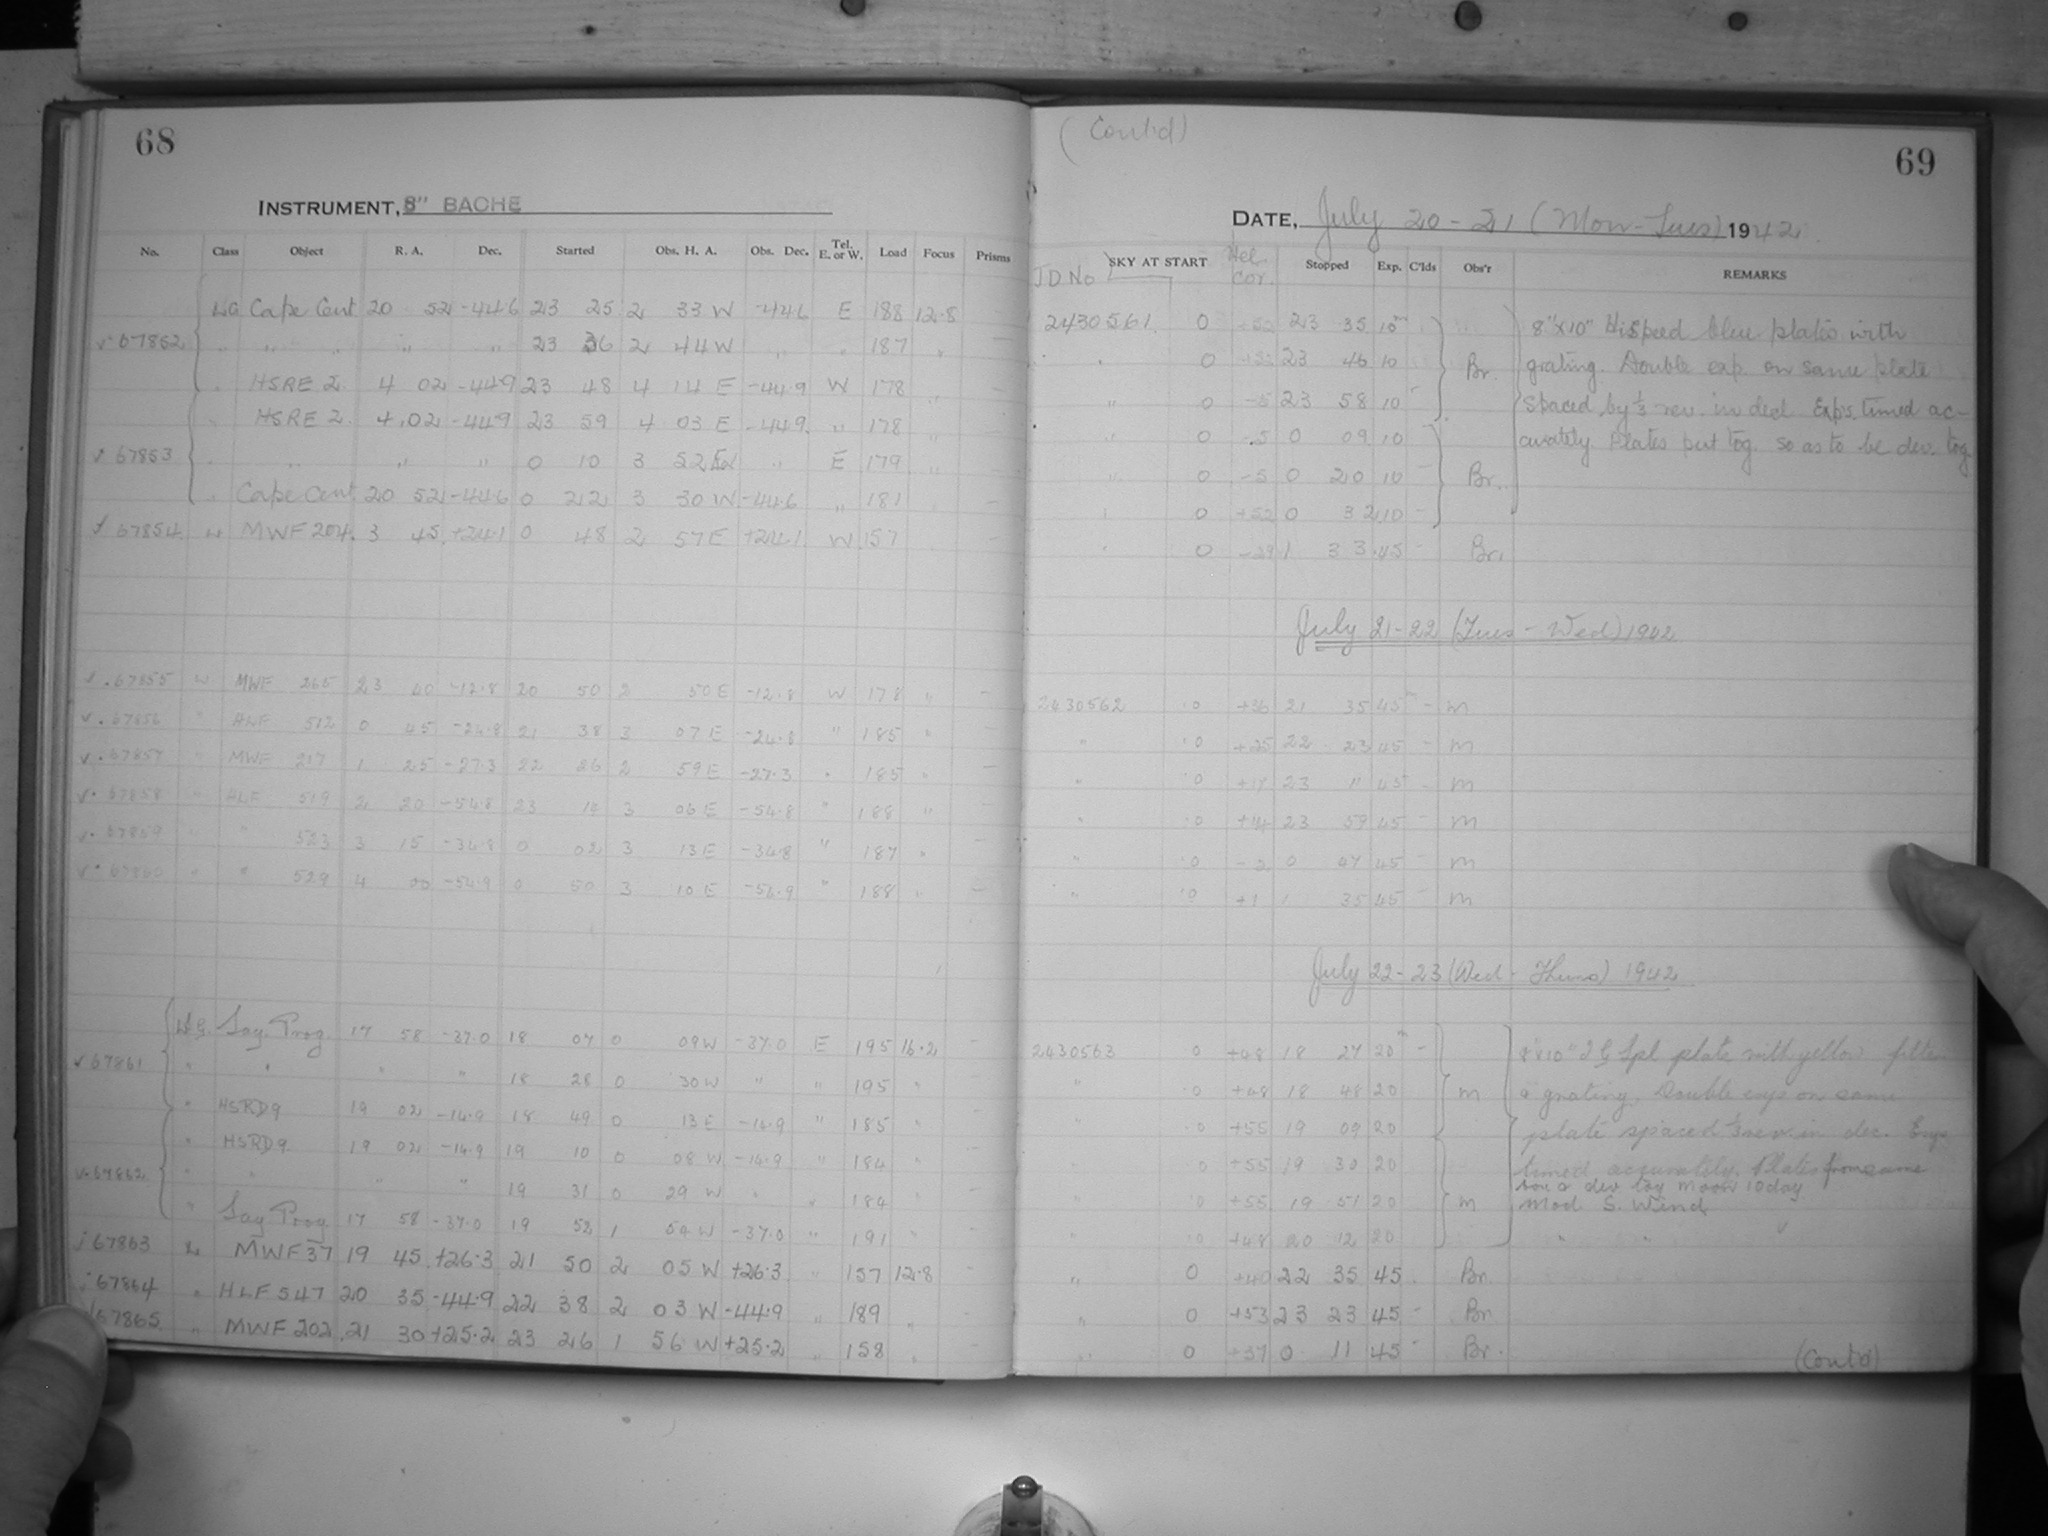 68
INSTRUMENT, 8" BACHE
No. Class Object R. A. Dec. Started Obs. H. A. Obs. Dec. Tel. E. or W. Load Focus Prisms
Cape Cent 20 52 -44.6 23 25 2 33 W -44.6 E 188 12.8 -
" " " " 23 36 2 44 W " " 187 " -
" HSRE 2 4 02 -44.9 23 48 4 14 E -44.9 W 178 " -
" HSRE 2. 4 02 -44.9 23 59 4 03 E -44.9 " 178 " -
67853 " " " " 0 10 3 52 " E 179 " -
" Cape Cent 20 52 -44.6 0 22 3 30 W -44.6 " 181 " -
67854 MWF 204. 3 45 +24.1 0 48 2 57 E +24.1 W 157
67855 MWF 265 23 40 -12.8 20 50 2 50 E -12.8 W 178 " -
67856 " HLF 512 0 45 -24.8 21 38 3 07 E -24.8 " 185 " -
67857 " MWF 217 1 25 -27.3 22 26 2 59 E -27.3 " 185 " -
67858 " HLF 519 2 20 -54.8 23 14 3 06 E -54.8 " 188 " -
67859 " " 523 3 15 -34.8 0 02 3 13 E -34.8 " 187 " -
67860 " " 529 4 00 -54.9 0 50 3 10 E -54.9 " 188 " -
Sag. Prog. 17 58 -37.0 18 07 0 09 W -37.0 E 195 16.2 -
67861 " " " " 18 28 0 30 W " " 195 " -
" HSRD9 19 02 -14.9 18 49 0 13 E -14.9 " 185 " -
" HSRD9 19 02 -14.9 19 10 0 08 W -14.9 " 184 " -
67862 " " " " 19 31 0 29 W " " 184 " -
" Sag Prog 17 58 -37.0 19 52 1 54 W -37.0 " 191 " -
67863 MWF 37 19 45 +26.3 21 50 2 05 W +26.3 " 157 12.8 -
67864 " HLF 547 20 35 -44.9 22 38 2 03 W -44.9 " 189 "
67865 " MWF 202 21 30 +25.2 23 26 1 56 W +25.2 " 158 "
(Cont'd)
69
DATE, July 20-21 (Mon-Tues) 1942.
J D No SKY AT START Hel. Cor. Stopped Exp. C'lds Obs'r REMARKS
2430561 0 +52 23 35 10m 8"x10" Hispeed blue plates with
" 0 +52 23 46 10 Br. grating. Double exp. on same plate
" 0 -5 23 58 10 spaced by 1/3 rev. in decl. Exp's. timed ac-
" 0 -5 0 09 10 curately Plates put tog. so as to be dev. tog
" 0 -5 0 20 10 Br.
" 0 +52 0 32 10 -
" 0 -29 1 33 45 - Br.
July 21-22 (Tues - Wed) 1942
2430562 0 +36 21 35 45m - m
" 0 +25 22 23 45 - m
" 0 +17 23 11 45 - m
" 0 +14 23 59 45 - m
" 0 -2 0 47 45 - m
" 0 +1 1 35 45 - m
July 22-23 (Wed - Thurs) 1942
2430563 0 +48 18 27 20m - 8"x10" Spl plate with yellow filter
" 0 +48 18 48 20 m & grating. Double exps on same
" 0 +55 19 09 20 plate spaced 1/3 rev. in dec. Exps
" 0 +55 19 30 20 timed accurately. Plates from same
box & dev tog Moon 10 day
" 0 +55 19 51 20 m Mod S. Wind
" 0 +48 20 12 20 " " "
" 0 +40 22 35 45 Br.
" 0 +53 23 23 45 - Br
" 0 +37 0 11 45 - Br.
(Cont'd)